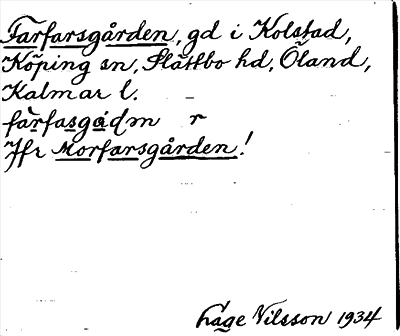 Farfarsgården, gd i Kolstad,
Köping sn, Slättbo hd, Öland,
Kalmar l.
farfasgaḍn r
Jfr Morfarsgården!
Låge Nilsson 1934